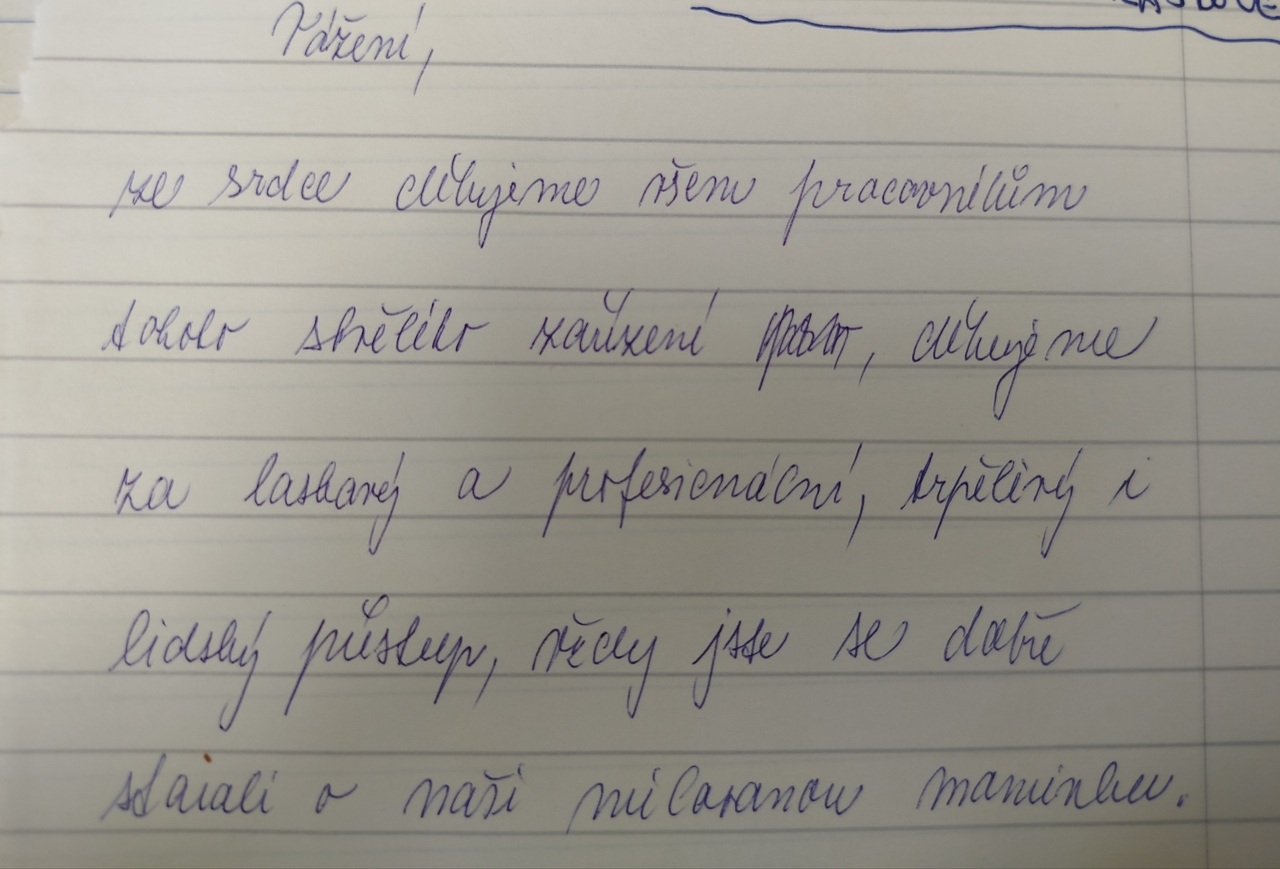 Vážení,
ze srdce děkujeme všem pracovníkům
tohoto skvělého zařízení, děkujeme
za laskavý a profesionální, trpělivý i
lidský přístup, vždy jste se dobře
starali o naši milovanou maminku.